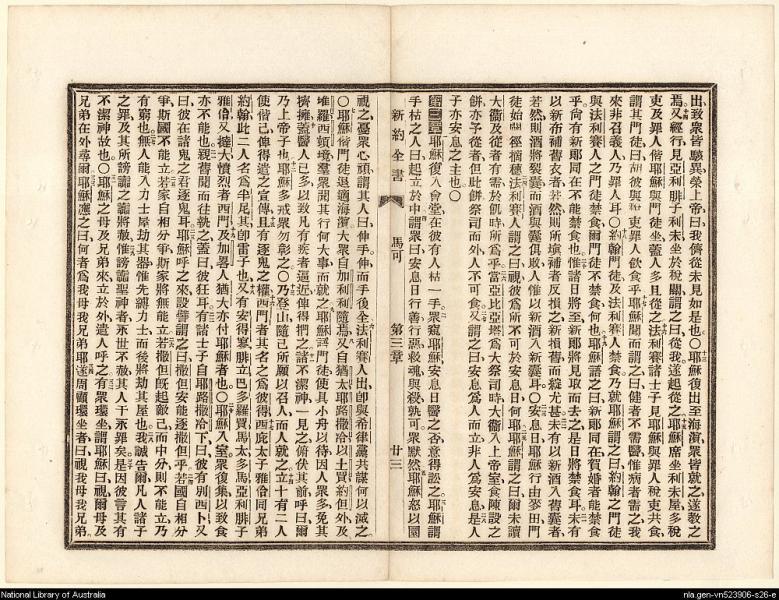 出致衆皆駭異榮上帝曰我儕從未見如是也○耶穌復出至海濱衆皆就之遂教之
焉又經行見亞利腓子利未坐於稅關謂之曰從我遂起從之耶穌席坐利未屋多稅
吏及罪人偕耶穌與門徒坐蓋人多且從之法利賽諸士子見耶穌與罪人稅吏共食
謂其門徒曰胡彼與稅吏罪人飲食乎耶穌聞而謂之曰健者不需醫惟病者需之我
來非召義人乃罪人耳○約翰門徒及法利賽人禁食乃就耶穌謂之曰約翰之門徒
與法利賽人之門徒禁食爾門徒不禁食何也耶穌語之曰新郎同在賀婚者能禁食
乎尚有新郎同在不能禁食也惟諸日將至新郎將見取而去之是日將禁食耳未有
以新布補舊衣者若然則所補者反損之新損舊而綻尤甚未有以新酒入舊囊者
若然則酒將裂囊而酒與囊俱敗人惟以新酒入新囊耳○安息日耶穌行由麥田門
徒始經摘穗法利賽人謂之曰視彼爲所不可於安息日何耶耶穌謂之曰爾未讀
大衞及從者有需於飢時所爲乎當亞比亞塔爲大祭司時大衞入上帝室食陳設之
餅亦予從者但此餅祭司而外人不可食又謂之曰安息爲人而立非人爲安息是人
子亦安息之主也○
耶穌復入會堂在彼有人枯一手衆窺耶穌安息日醫之否意得訟之耶穌謂
手枯之人曰起立於中謂衆曰安息日行善行惡救魂與殺孰可衆默然耶穌怒以圜
新約全書 馬可 第三章 廿三
視之憂衆心頑謂其人曰伸手伸而手後全法利賽人出卽與希律黨共謀何以滅之
○耶穌偕門徒退適海濱大衆自加利利隨焉又自猶太耶路撒冷以土買約但外及
堆羅西頓境羣衆聞其行何大事而就之耶穌謂門徒使具小舟以待因人衆多免其
擠擁蓋醫人已多以致凡有疾者逼近俾得捫之諸不潔神一見之俯伏其前呼曰爾
乃上帝子也耶穌多戒衆勿彰之○乃登山隨己所願以召人而人就之立十有二人
使偕己俾得遣之宣傳且有逐鬼之權西門者其名之爲彼得西庇太子雅伯同兄弟
約翰此二人名爲半尼其卽雷子也又有安得烈腓立巴多羅買馬太多馬亞利腓子
雅伯又撻大憤烈者西門及加畧人猶大亦付耶穌者也○耶穌入室衆復集以致食
亦不能也親舊聞而往執之蓋曰彼狂耳有諸士子自耶路撒冷下曰彼有別西卜又
曰彼在諸鬼之君逐鬼耳耶穌呼之來設譬謂之曰撒但安能逐撒但乎若國自相分
爭斯國不能立若家自相分爭斯家將無能立若撒但旣起敵己而中分則不能立乃
有窮也無人能入力士屋劫其器惟先縛力士而後將劫其屋也我誠告爾凡人諸子
之罪及其所謗讟之讟將赦惟謗讟聖神者永世不赦其人于永罪矣是因彼言其有
不潔斯神故也○耶穌之母及兄弟來立於外遣人呼之有衆環坐謂耶穌曰視爾母及
兄弟在外尋爾耶穌應之曰何者爲我母我兄弟耶遂周顧環坐者曰視我母我兄弟
National Library of Australia
nla.gen-vn523906-s26-e